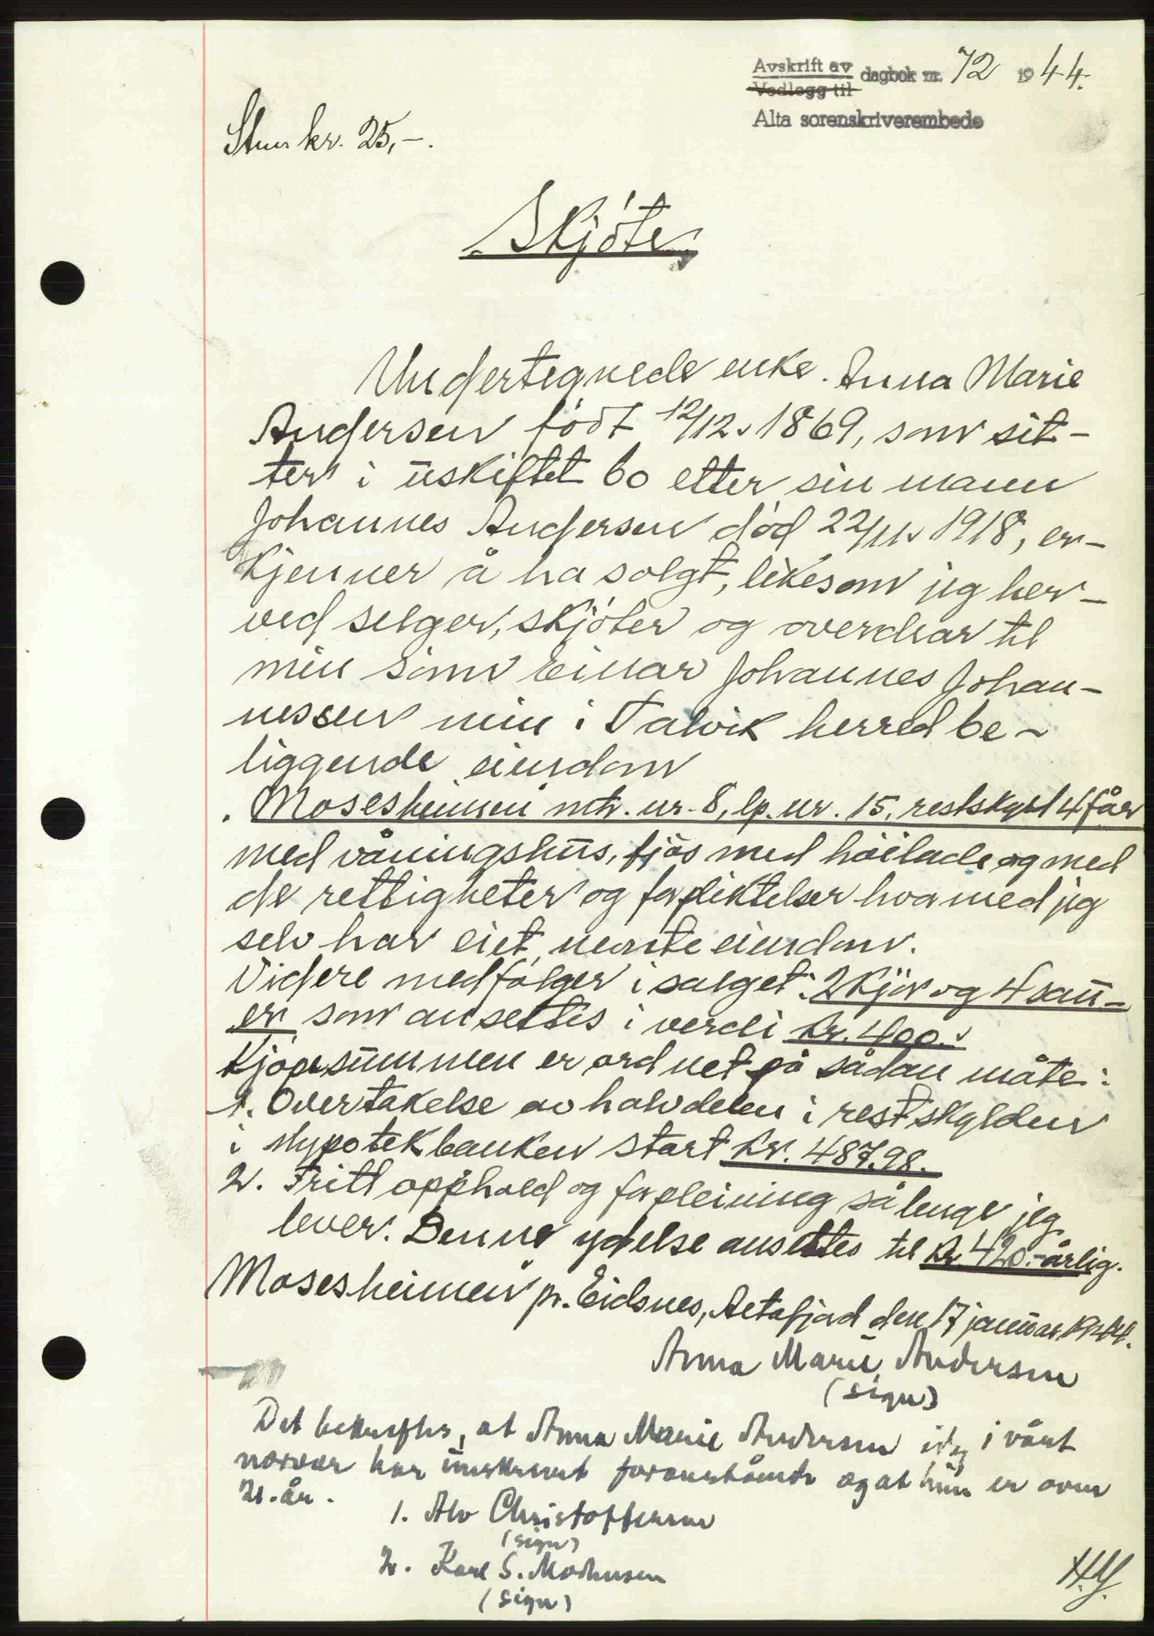 Avskrift av
Vedlegg til dagbok nr. 72 1944.
Alta sorenskriverembede
kr. 25,-.
Skjöte
Undertegnede enke Anna Marie
Andersen födt 12/12 1869, som sit-
ter i uskiftet bo etter sin mann
Johannes Andersen död 22/11 1918, er-
kjenner å ha solgt, likesom jeg her-
ved selger, skjöter og overdrar til
min sönn Einar Johannes Johan-
nessen min i Talvik herred be-
liggende eiendom
Mosesheimen mtr. nr. 8, lp. nr. 15, restskyld 4 före
med våningshus, fjös med höilade og med
de rettigheter og forpliktelser hvormed jeg
selv har eiet nevnte eiendom.
Videre medfölger i salget: 2 kjör og 4 sau-
er som ansettes i verdi kr. 400.-
Kjöpesummen er ordnet på sådan måte:
1. Overtakelse av halvdelen i restskylden
i Hypotekbanken stort kr. 487,98.
2. Fritt opphold og forpleining så lenge jeg
lever. Denne ydelse ansettes til kr. 420.- årlig.
Mosesheimen pr. Eidsnes, Altafjord den 17 januar 1944.
Anna Marie Andersen
(sign)
Det bekreftes, at Anna Marie Andersen idag i vårt
nærvær har underskrevet foranstående og at hun er over
21. år.
1. Alv Christoffersen
(sign)
2. Karl S. Mathisen
(sign)
H.Y.